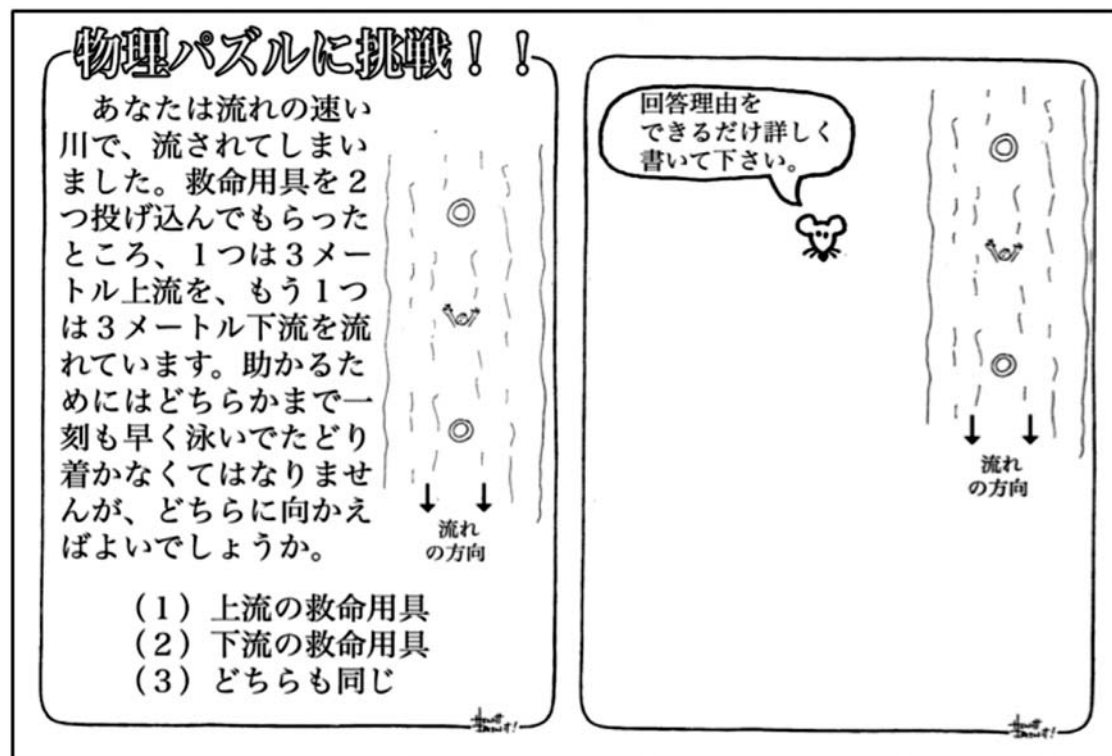 物理パズルに挑戦！！
　あなたは流れの速い
川で、流されてしまい
ました。救命用具を２
つ投げ込んでもらった
ところ、１つは３メー
トル上流を、もう１つ
は３メートル下流を流
れています。助かるた
めにはどちらかまで一
刻も早く泳いでたどり
着かなくてはなりませ
んが、どちらに向かえ
ばよいでしょうか。
流れ
の方向
（１）上流の救命用具
（２）下流の救命用具
（３）どちらも同じ
回答理由を
できるだけ詳しく
書いて下さい。
流れ
の方向